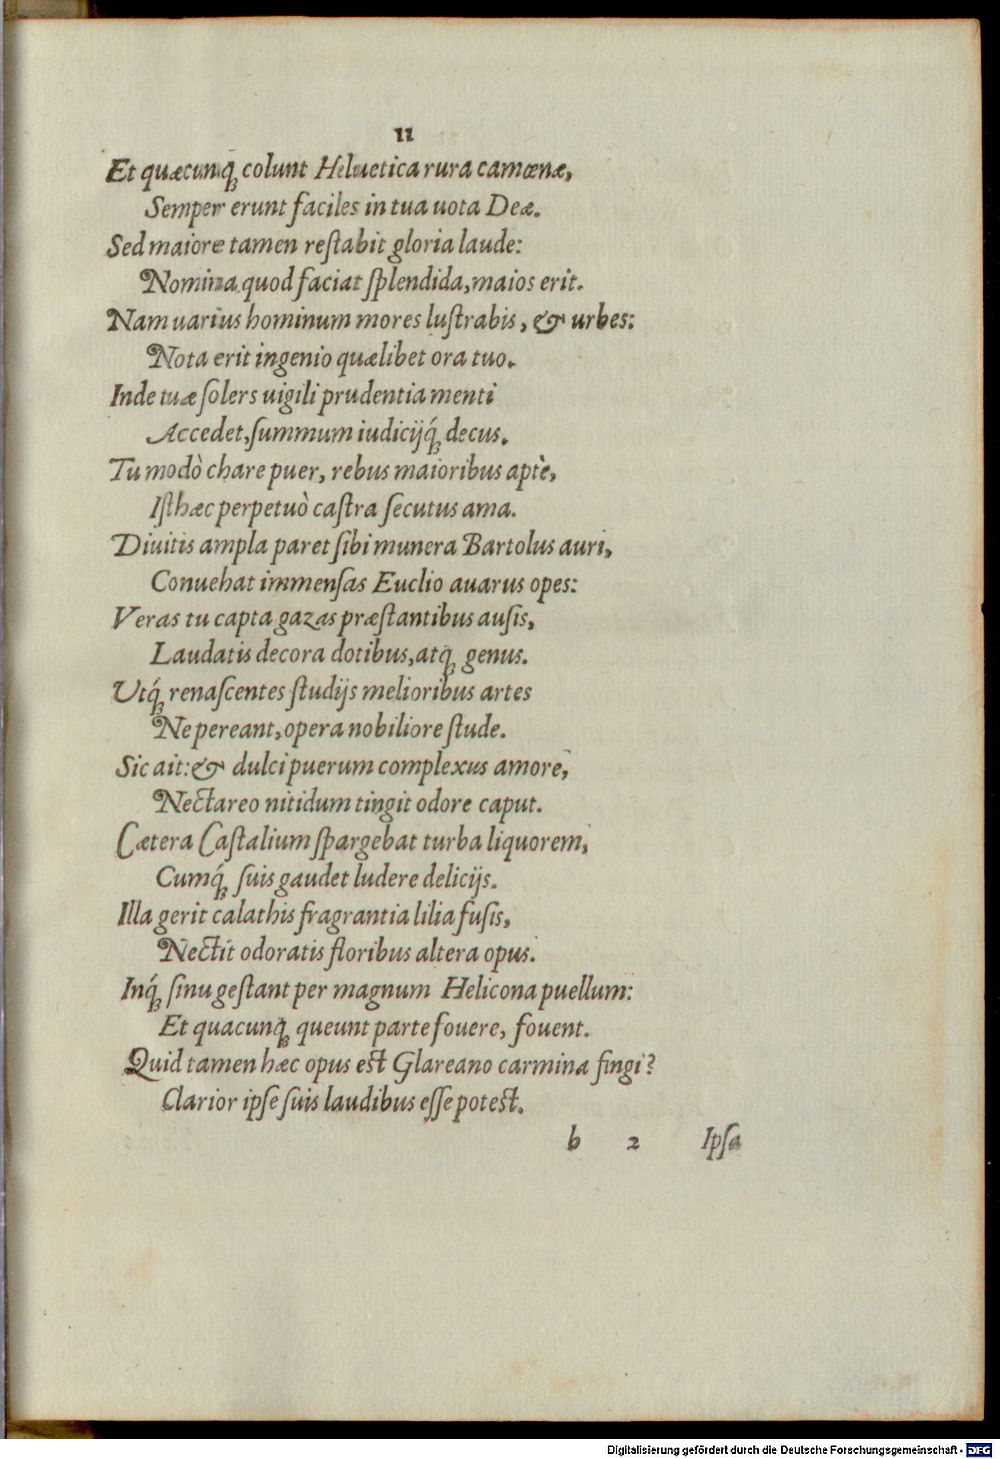 11
Et quæcunq́ꝫ colunt Heluetica rura camœnæ,
Semper erunt faciles in tua uota Deæ.
Sed maiore tamen reſtabit gloria laude:
Nomina quod faciat ſplendida, maios erit.
Nam uarius hominum mores luſtrabis, & urbes:
Nota erit ingenio quælibet ora tuo.
Inde tuæ ſolers uigili prudentia menti
Accedet, ſummum iudicijq́ꝫ decus.
Tu modò chare puer, rebus maioribus aptè,
Iſthæc perpetuò caſtra ſecutus ama.
Diuitis ampla paret ſibi munera Bartolus auri,
Conuehat immenſas Euclio auarus opes:
Veras tu capta gazas præſtantibus auſis,
Laudatis decora dotibus, atq́ꝫ genus.
Utq́ꝫ renaſcentes ſtudijs melioribus artes
Ne pereant, opera nobiliore ſtude.
Sic ait: & dulci puerum complexus amore,
Nectareo nitidum tingit odore caput.
Cætera Caſtalium ſpargebat turba liquorem,
Cumq́ꝫ ſuis gaudet ludere delicijs.
Illa gerit calathis fragrantia lilia fuſis,
Nectit odoratis floribus altera opus.
Inq́ꝫ ſinu geſtant per magnum Helicona puellum:
Et quacunq́ꝫ queunt parte fouere, fouent.
Quid tamen hæc opus eſt Glareano carmina fingi?
Clarior ipſe ſuis laudibus eſſe poteſt.
b 2 Ipſa
Digitalisierung gefördert durch die Deutsche Forschungsgemeinschaft - DFG